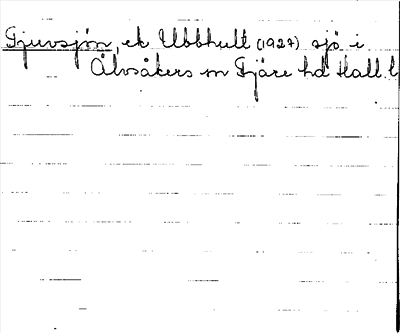 Tjuvsjön, ek Ubbhult (1927) sjö i
Älvsåkers sn Fjäre hd Hall. l